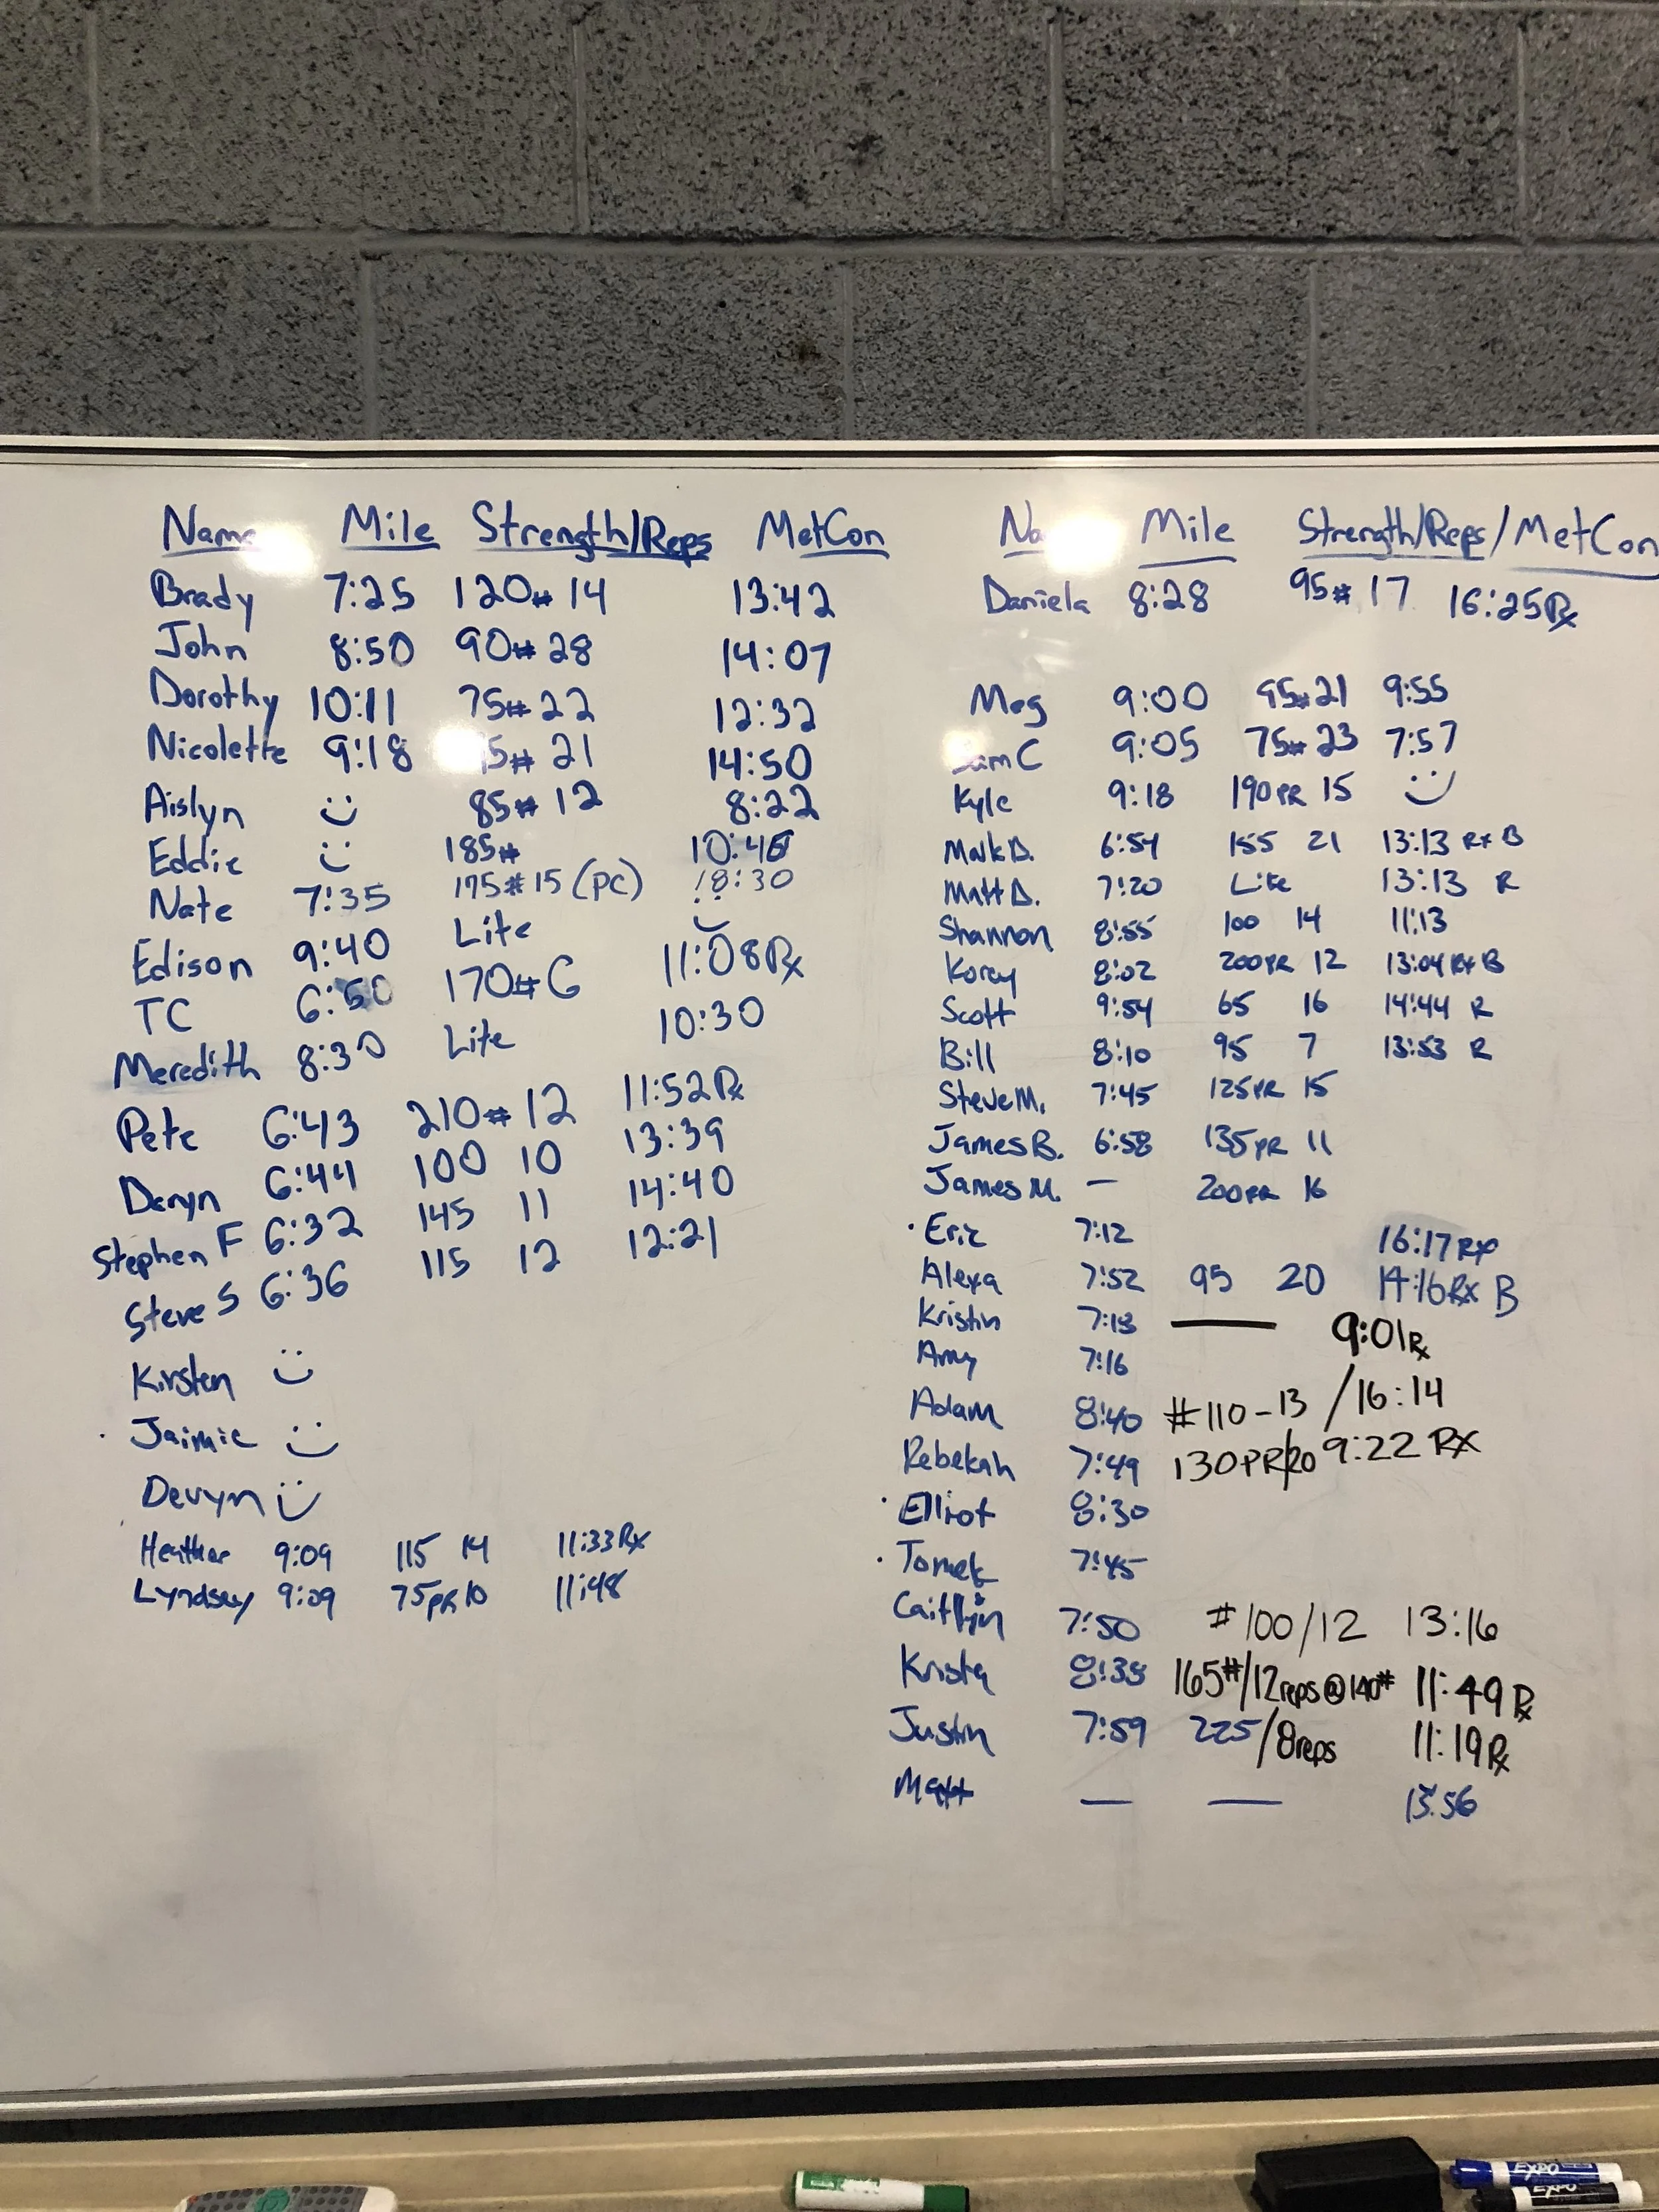 Name Mile Strength/Reps MetCon
Brady 7:25 120# 14 13:42
John 8:50 90# 28 14:07
Dorothy 10:11 75# 22 12:32
Nicolette 9:18 5# 21 14:50
Aislyn 85# 12 8:22
Eddie 185#
Nate 7:35 175# 15 (PC) 18:30
Edison 9:40 Lite
TC 6:50 170# 6 11:08 Rx
Meredith 8:30 Lite 10:30
Pete 6:43 210# 12 11:52 Rx
Daryn 6:44 100 10 13:39
Stephen F 6:32 145 11 14:40
Steve S 6:36 115 12 12:21
Kirsten
Jaimie
Devyn
Heather 9:09 115 14 11:33 Rx
Lyndsey 9:09 75 PR 10 11:48
Na Mile Strength/Reps/MetCon
Daniela 8:28 95# 17 16:25 Rx
Meg 9:00 95# 21 9:55
Sam C 9:05 75# 23 7:57
Kyle 9:18 190 PR 15
Mark D. 6:54 155 21 13:13 Rx B
Matt D. 7:20 Lite 13:13 R
Shannon 8:55 100 14 11:13
Korey 8:02 200 PR 12 13:04 Rx B
Scott 9:54 65 16 14:44 R
Bill 8:10 95 7 13:53 R
Steve M. 7:45 125 PR 15
James B. 6:58 135 PR 11
James M. — 200 PR 16
· Eric 7:12 16:17 Rx
Alexa 7:52 95 20 14:16 Rx B
Kristin 7:18 — 9:01 Rx
Amy 7:16
Adam 8:40 #110 - 13 / 16:14
Rebekah 7:49 130 PR/20 9:22 RX
· Elliot 8:30
· Tomek 7:45
Caitlyn 7:50 #100/12 13:16
Krista 8:38 165#/12 reps @ 140# 11:49 Rx
Justin 7:59 225/8 reps 11:19 Rx
Matt — — 13:56
EXPO
EXPO